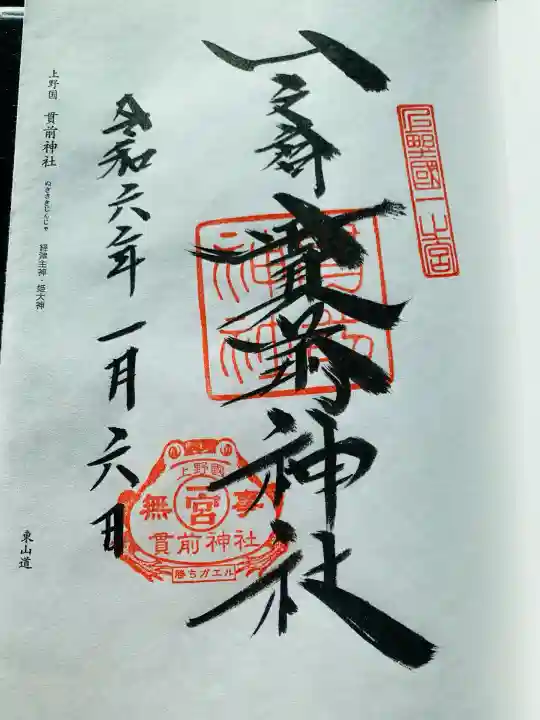 上野國一之宮
一之宮 貫前神社
貫前神社
令和六年一月六日
上野國
無事
一宮
貫前神社
勝ちガエル
上野国 貫前神社 ぬきさきじんじゃ 経津主神・姫大神
東山道